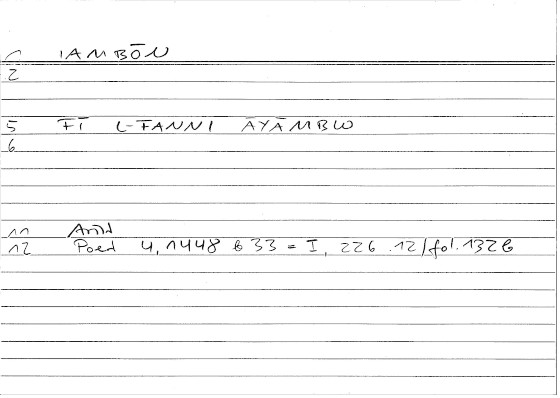 1 IAMBŌN
2
5 FĪ L-FANNI ĀYĀMBŪ
6
11 Arist
12 Poet 4, 1448 b 33 = I, 226 .12/fol. 132 b